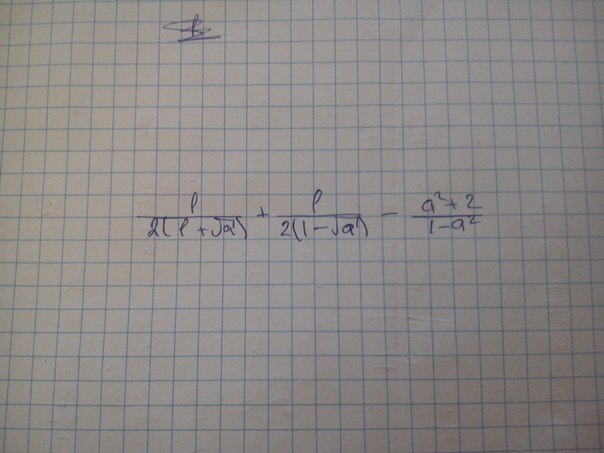 1/(2(1+√a)) + 1/(2(1-√a)) - (a²+2)/(1-a²)